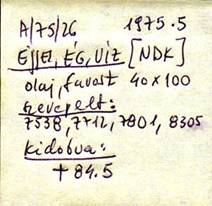 A/75/26 1975.5
ÉJJEL, ÉG, VÍZ [NDK]
olaj, farost 40x100
szerepelt:
7538, 7712, 7801, 8305
kidobva:
+ 84.5